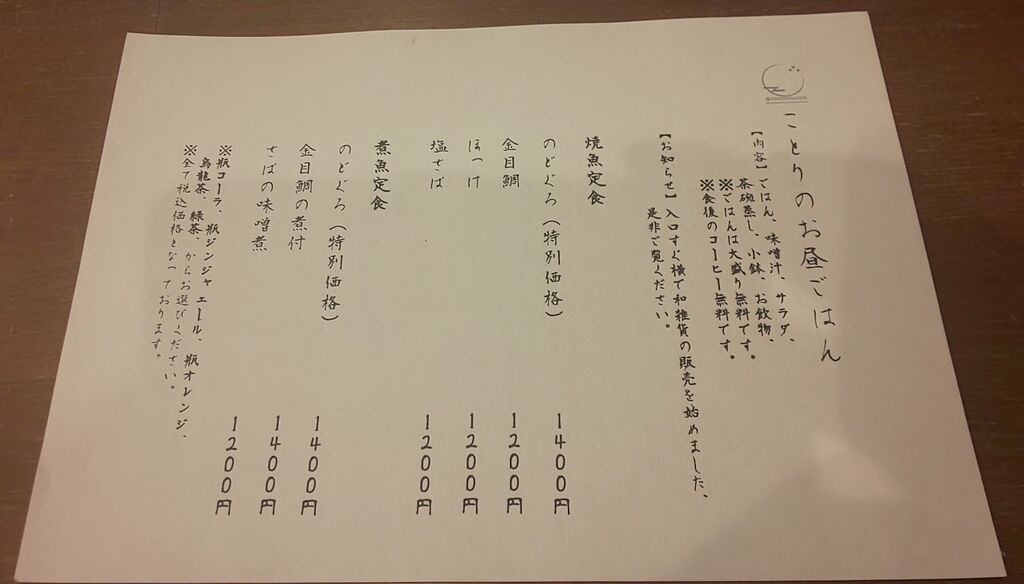 ことりのお昼ごはん
【内容】ごはん、味噌汁、サラダ、
茶碗蒸し、小鉢、お飲物、
※ごはんは大盛り無料です。
※食後のコーヒー無料です。
【お知らせ】入口すぐ横で和雑貨の販売を始めました、
是非ご覧ください。
焼魚定食
のどぐろ(特別価格) 1400円
金目鯛 1200円
ほっけ 1200円
塩さば 1200円
煮魚定食
のどぐろ(特別価格) 1400円
金目鯛の煮付 1400円
さばの味噌煮 1200円
※瓶コーラ、瓶ジンジャエール、瓶オレンジ、
烏龍茶、緑茶、からお選びください。
※全て税込価格となっております。